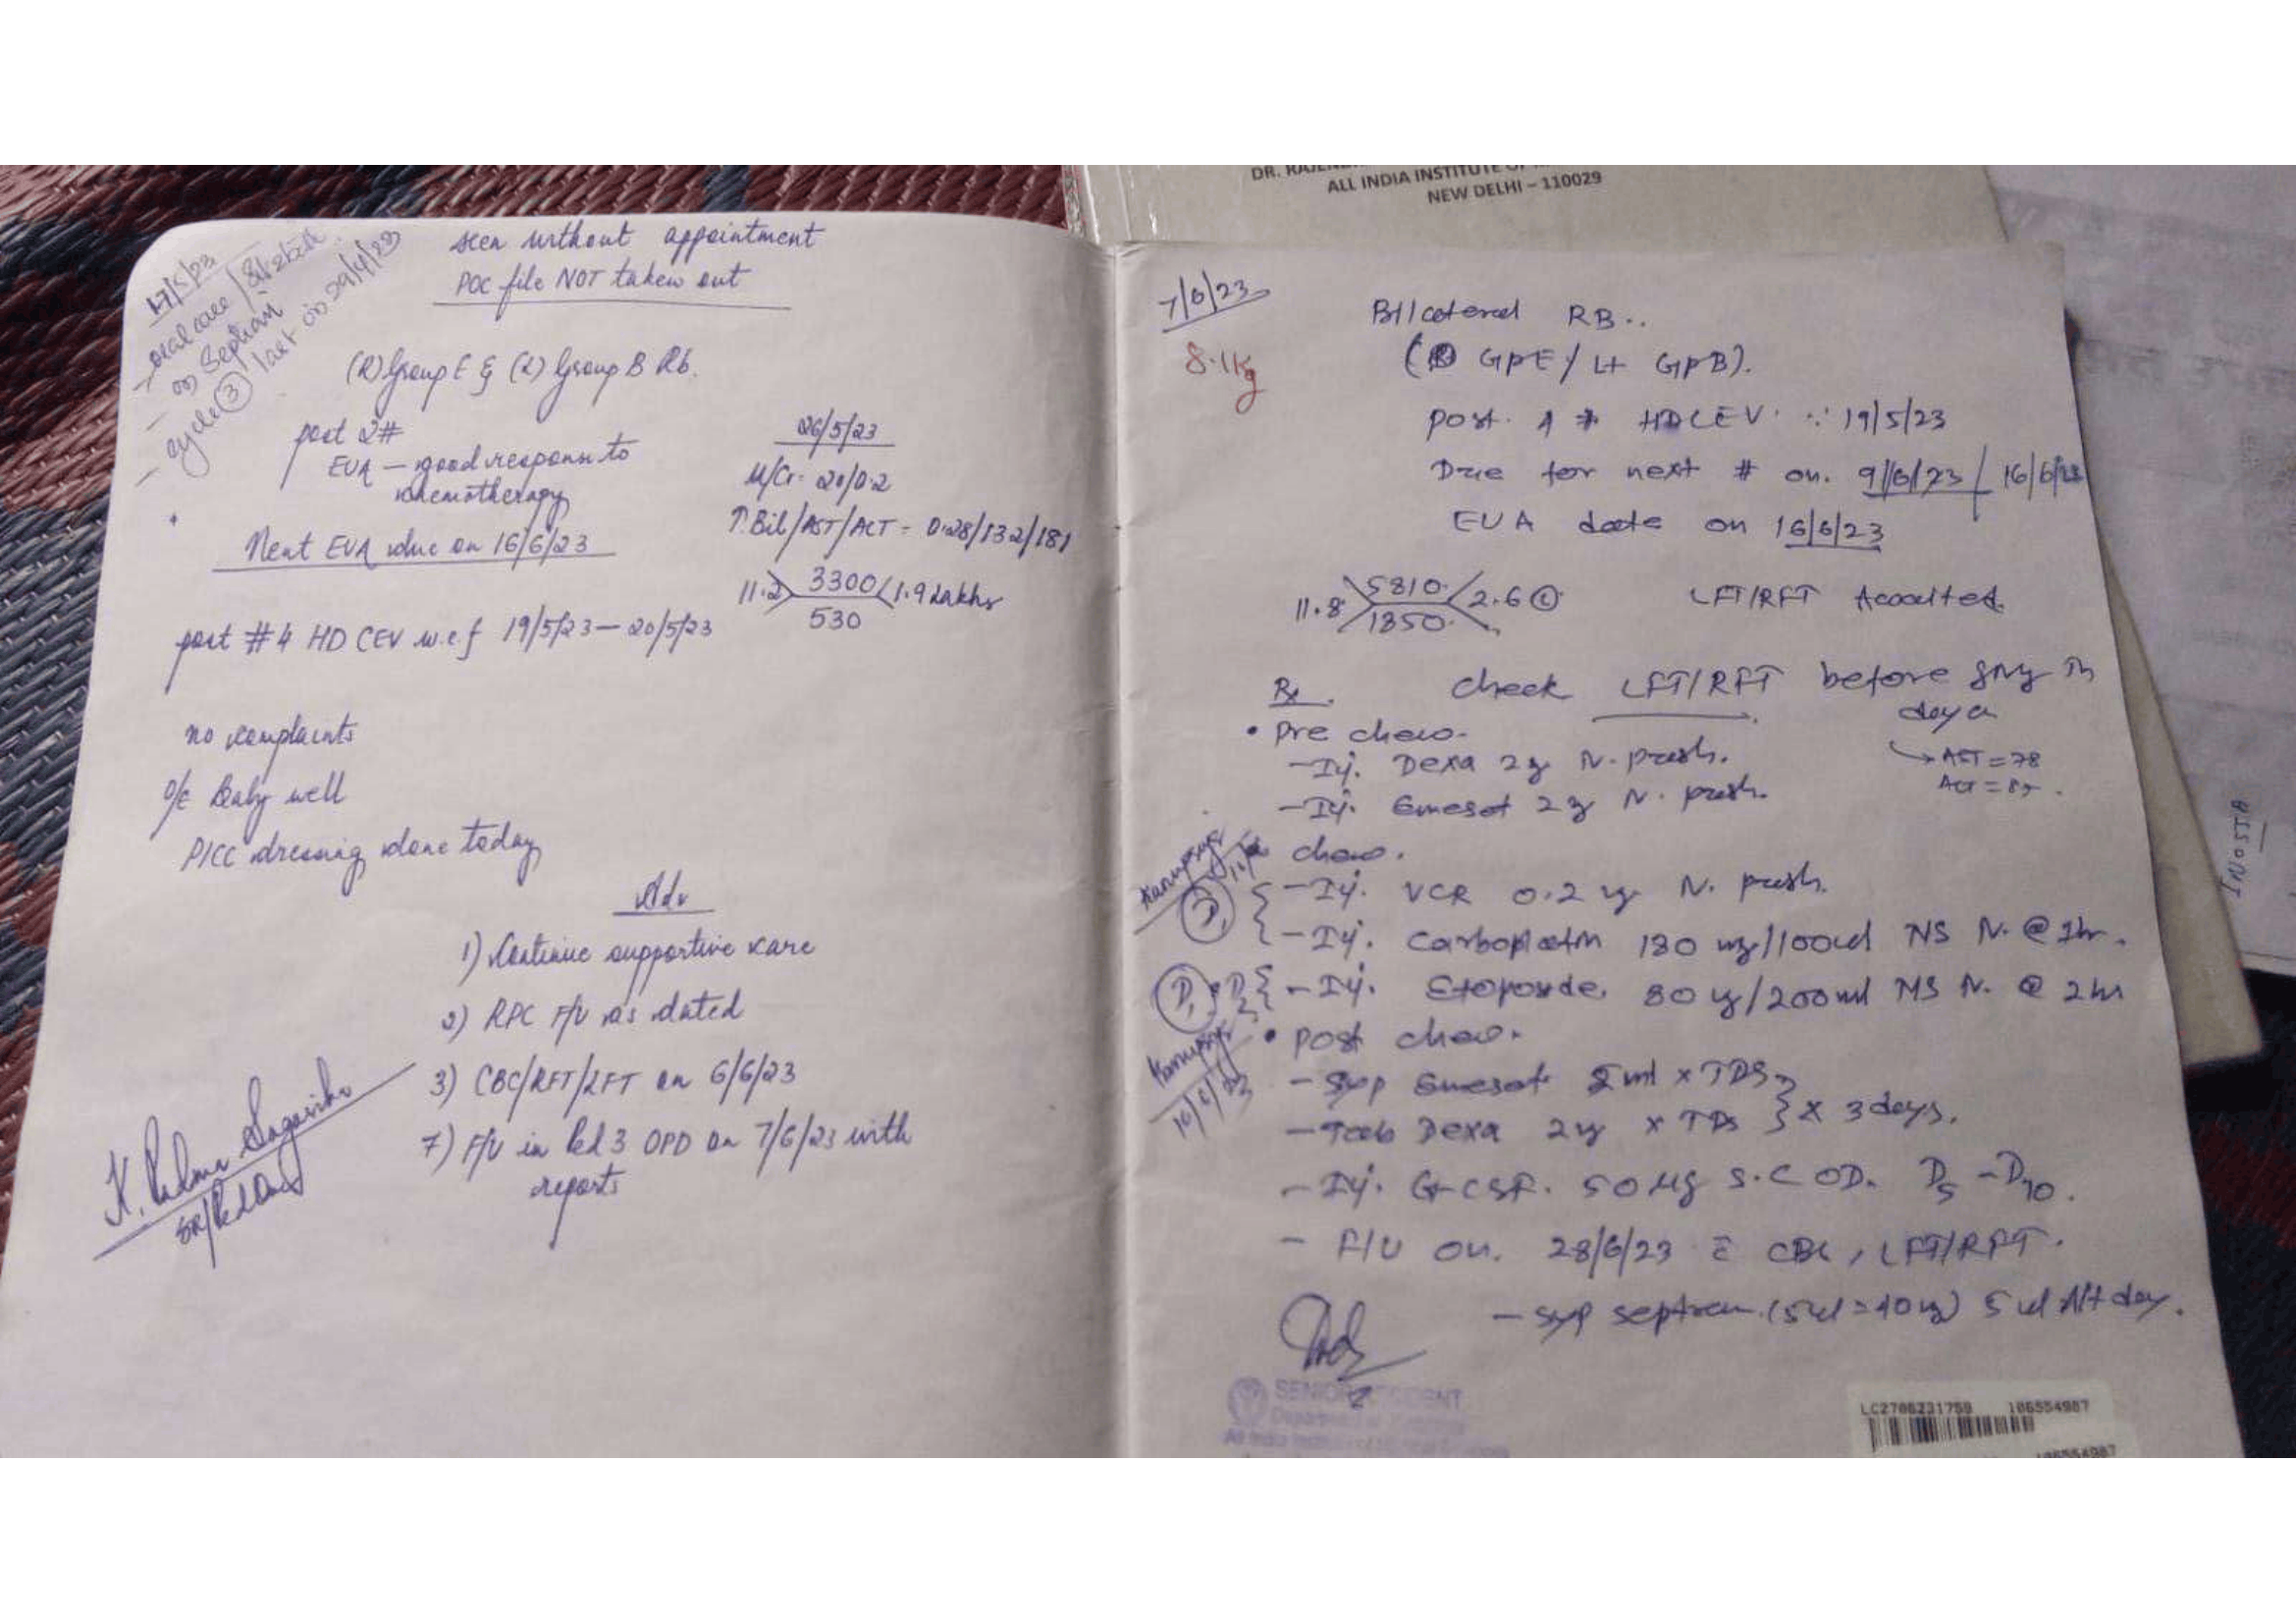 DR. RAJEN
ALL INDIA INSTITUTE OF
NEW DELHI – 110029
17/5/23
- oral care / Sitzbath
- on Septran
- cycle ③ last on 29/4/23
seen without appointment
POC file NOT taken out
(R) Group E & (L) Group B Rb.
post 2#
EUA – good response to
chemotherapy
Next EUA due on 16/6/23
post #4 HD CEV w.e.f 19/5/23 – 20/5/23
26/5/23
U/Cr- 20/0.2
T.Bil/AST/ALT = 0.28/132/181
11.2 3300 1.9 Lakhs
530
no complaints
O/E Baby well
PICC dressing done today
Adv
1) Continue supportive care
2) RPC F/U as dated
3) CBC/RFT/LFT on 6/6/23
7) F/U in Ped 3 OPD on 7/6/23 with
reports
K. Padma
SR/Ped Onc
7/6/23
8.1kg
Bilateral RB..
(R GpE / Lt GpB).
post. 4 # HDCEV ∵ 19/5/23
Due for next # on. 9/6/23 / 16/6/23
EUA date on 16/6/23
11.8 5810 2.6 Ⓛ
1850
LFT/RFT Awaited.
Rx. check LFT/RFT before giving
↳ AST = 78
• Pre chemo-
- Inj. Dexa 2mg IV. push.
- Inj. Emeset 2mg IV. push.
chemo.
D1 { - Inj. VCR 0.2 mg IV. push.
- Inj. Carboplatin 180 mg/100ml NS IV. @ 1hr.
- Inj. Etoposide 80 mg/200ml NS IV. @ 2hr
10/6/23
• post chemo.
- Syp Emeset 2ml x TDS
- Tab Dexa 2mg x TDS } x 3 days.
- Inj. G-CSF. 50 µg S.C OD. D5 - D10.
- F/U on. 28/6/23 c̄ CBC, LFT/RFT.
- Syp septran (5ml = 40mg) 5ml Alt day.
SENIOR RESIDENT
LC2706231759 106554987
106554987
INOSTA